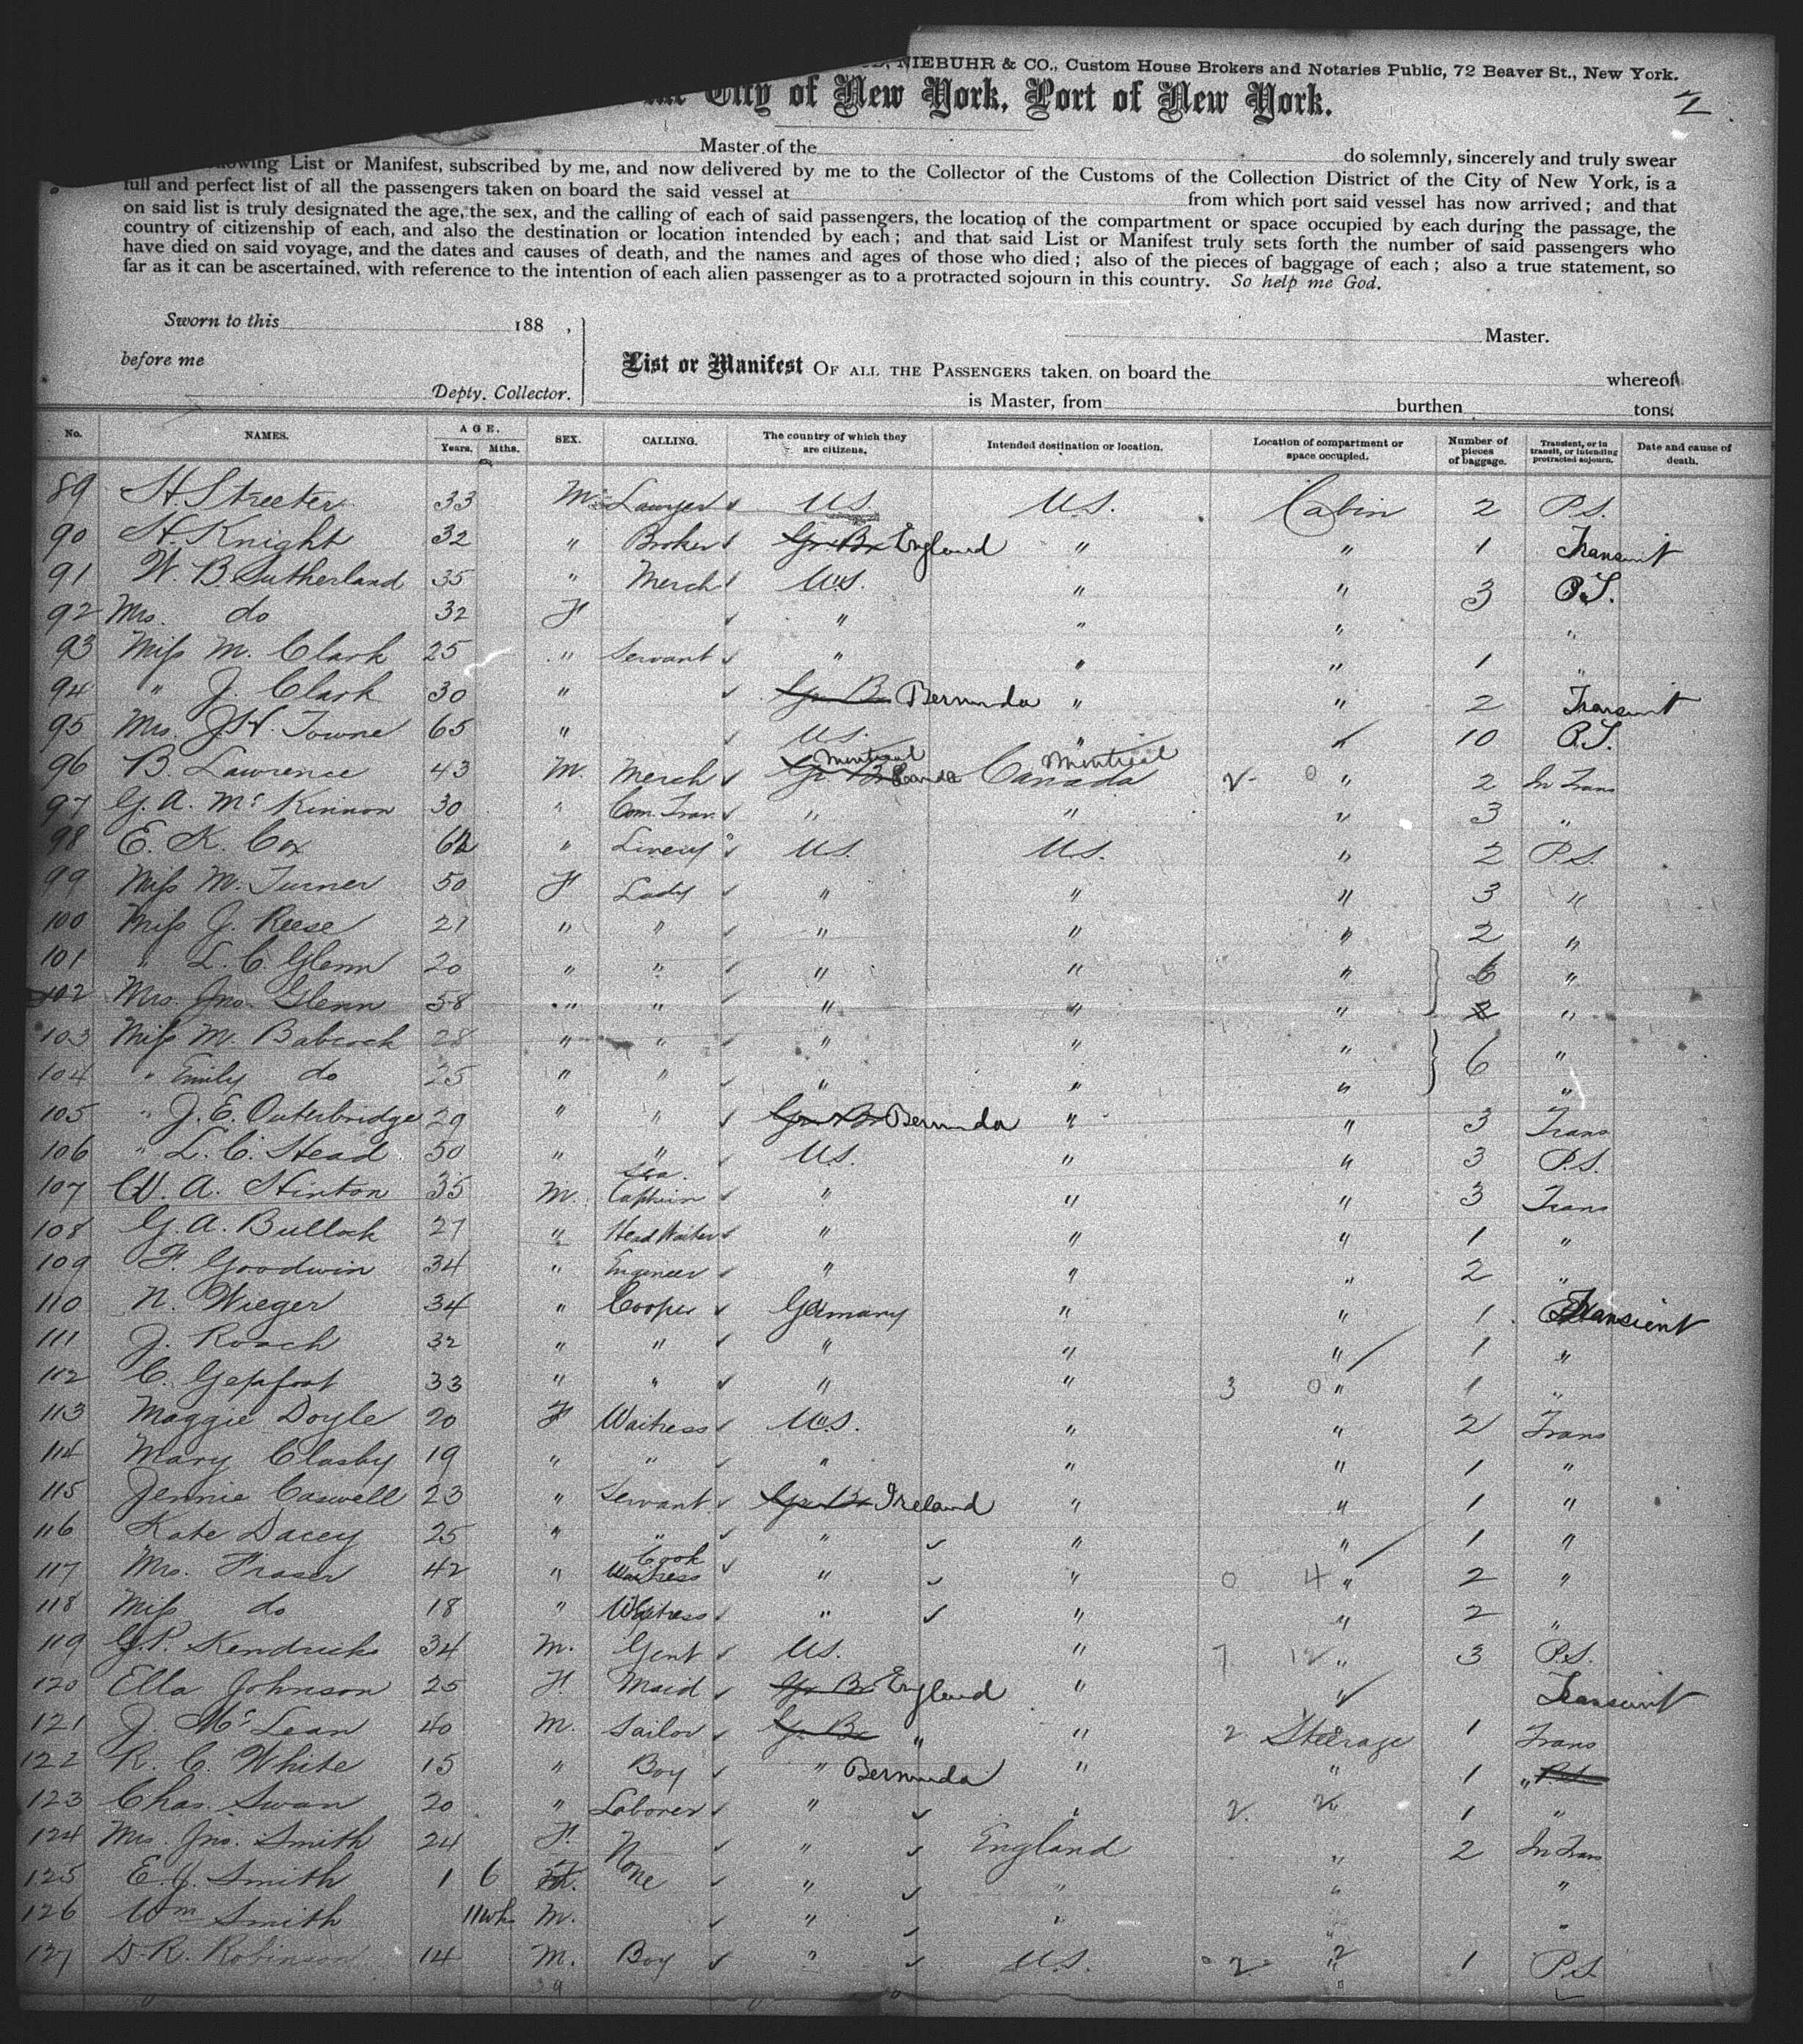 NIEBUHR & CO., Custom House Brokers and Notaries Public, 72 Beaver St., New York.
City of New York, Port of New York.
2
Master of the do solemnly, sincerely and truly swear
following List or Manifest, subscribed by me, and now delivered by me to the Collector of the Customs of the Collection District of the City of New York, is a
full and perfect list of all the passengers taken on board the said vessel at from which port said vessel has now arrived; and that
on said list is truly designated the age, the sex, and the calling of each of said passengers, the location of the compartment or space occupied by each during the passage, the
country of citizenship of each, and also the destination or location intended by each; and that said List or Manifest truly sets forth the number of said passengers who
have died on said voyage, and the dates and causes of death, and the names and ages of those who died; also of the pieces of baggage of each; also a true statement, so
far as it can be ascertained, with reference to the intention of each alien passenger as to a protracted sojourn in this country. So help me God.
Sworn to this 188 ,
Master.
before me
List or Manifest OF ALL THE PASSENGERS taken on board the whereof
Depty. Collector.
is Master, from burthen tons.
No. NAMES. AGE. Years. Mths. SEX. CALLING. The country of which they are citizens. Intended destination or location. Location of compartment or space occupied. Number of pieces of baggage. Transient, or in transit, or intending protracted sojourn. Date and cause of death.
89 H. Streeter 33 M. Lawyer U.S. U.S. Cabin 2 P.S.
90 H. Knight 32 " Broker Gr. Br. England " " 1 Transient
91 W. B. Sutherland 35 " Merch U.S. " " 3 P.S.
92 Mrs. do 32 F " " " "
93 Miss M. Clark 25 " Servant " " " 1 "
94 " J. Clark 30 " Gr. Br. Bermuda " " 2 Transient
95 Mrs. J. H. Towne 65 " U.S. " " 10 P.S.
96 B. Lawrence 43 M. Merch Gr. Br. Montreal Canada Canada Montreal 2 0 " 2 In Trans
97 G. A. McKinnon 30 " Com. Trav. " " " 3 "
98 E. K. Cox 62 " Livery U.S. U.S. " 2 P.S.
99 Miss M. Turner 50 F Lady " " " 3 "
100 Miss J. Reese 21 " " " " " 2 "
101 " L. C. Glenn 20 " " " " " 6 "
102 Mrs. Jno. Glenn 58 " " " " " 2 "
103 Miss M. Babcock 28 " " " " " 6 "
104 " Emily do 25 " " " " " "
105 " J. E. Outerbridge 29 " " Gr. Br. Bermuda " " 3 Trans
106 " L. C. Stead 50 " " U.S. " " 3 P.S.
107 W. A. Hinton 35 M. Sea Captain " " " 3 Trans
108 G. A. Bullock 27 " Head Waiter " " " 1 "
109 F. Goodwin 34 " Engineer " " " 2 "
110 N. Wieger 34 " Cooper Germany " " 1 Transient
111 J. Roach 32 " " " " " 1 "
112 C. Gepfort 33 " " " " 3 0 " 1 "
113 Maggie Doyle 20 F Waitress U.S. " " 2 Trans
114 Mary Clasby 19 " " " " " 1 "
115 Jennie Caswell 23 " Servant Gr. Br. Ireland " " 1 "
116 Kate Dacey 25 " " " " " 1 "
117 Mrs. Fraser 42 " Cook Waitress " " 0 4 " 2 "
118 Miss do 18 " Waitress " " " 2 "
119 G. P. Kendricks 34 M. Gent U.S. " 7 12 " 3 P.S.
120 Ella Johnson 25 F. Maid Gr. Br. England " " Transient
121 J. McLean 40 M. Sailor Gr. Br. " " 2 Steerage 1 Trans
122 R. C. White 15 " Boy " Bermuda " " 1 " P.S.
123 Chas. Swan 20 " Laborer " " 2 2 1 "
124 Mrs. Jno. Smith 24 F. None " England " 2 In Trans
125 E. J. Smith 1 6 " " " "
126 Wm Smith 11 wk M. " " " "
127 D. R. Robinson 14 M. Boy " U.S. 2 2 " 1 P.S.
39